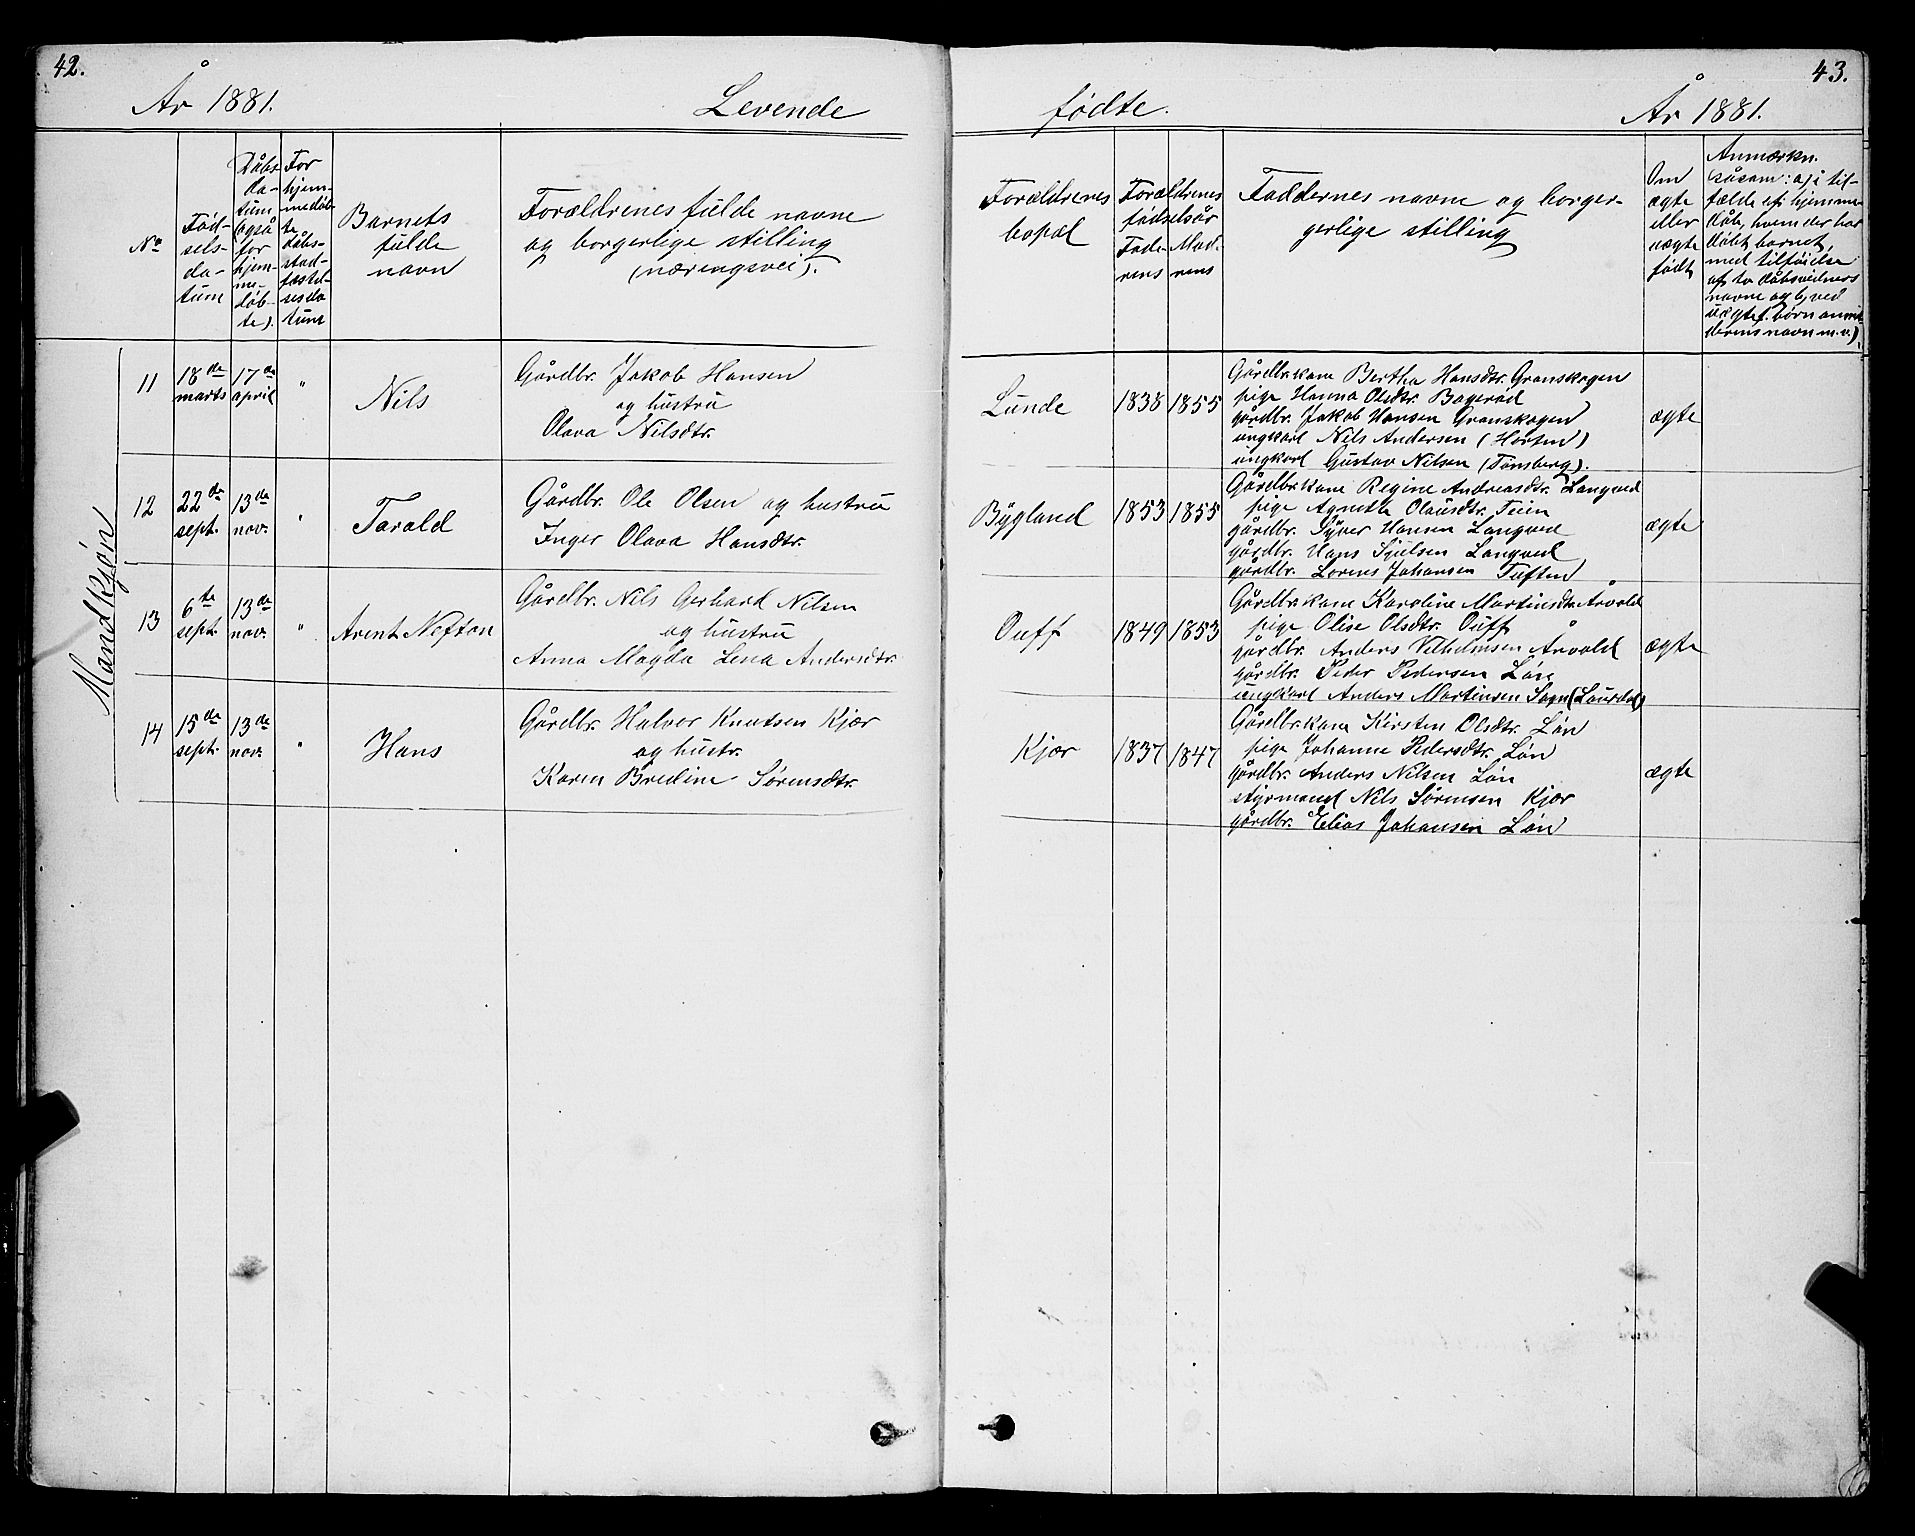 42.
År 1881.
Levende
No
Fød-
sels-
da-
tum
Dåbs
da-
tum
også
for
hjem-
me-
døb-
te).
For
hjem-
medøb-
te
dåbs-
stad-
fæstel-
sesda
tum
Barnets
fulde
navn
Forældrenes fulde navne
og borgerlige stilling
(næringsvei).
Mandkjøn
11
18de
marts
17de
april
"
Nils
Gårdbr. Jakob Hansen
og hustru
Olava Nilsdtr.
12
22de
sept.
13de
nov.
"
Tarald
Gårdbr. Ole Olsen og hustru
Inger Olava Hansdtr.
13
6te
sept.
13de
nov.
"
Arent Neftan
Gårdbr. Nils Gerhard Nilsen
og hustru
Anna Magda Lena Andersdtr.
14
15de
sept.
13de
nov.
"
Hans
Gårdbr. Halvor Knutsen Kjær
og hustr.
Karen Bredine Sørensdtr.
43.
fødte.
År 1881.
Forældrenes
bopæl
Forældrenes
fødselsår
Fade-
rens
Mod-
rens
Faddernes navne og borger-
gerlige stilling
Om
ægte
eller
uægte
født
Anmærkn.
såsom: a, i til-
fælde af hjemme-
dåb, hvem der har
døbt barnet,
med tilføielse
af to dåbsvidners
navne og b, ved
uægtef. børn anmel-
derens navn m.v.).
Lunde
1838
1855
Gårdbr.kone Bertha Hansdtr. Granskogen
pige Hanna Olsdtr. Bagerød
gårdbr. Jakob Hansen Granskogen
ungkarl Nils Andersen (Horten)
ungkarl Gustav Nilsen (Tønsberg).
ægte
Bÿgland
1853
1855
Gårdbr.kone Regine Andreasdtr. Langved
pige Agnethe Olausdtr. Tem
gårdbr. Syver Hansen Langved
gårdbr. Hans Sjulsen Langved
gårdbr. Lorens Johansen Tuften
ægte
Ouff
1849
1853
Gårdbr.kone Karoline Martinsdtr. Årvold
pige Olise Olsdtr. Ouff
gårdbr. Anders Vilhelmsen Årvold
gårdbr. Peder Pedersen Løn
ungkarl Anders Martinsen Sogn (Laurdal)
ægte
Kjær
1837
1847
Gårdbr.kone Kirsten Olsdtr. Løn
pige Johanne Pedersdtr. Løn
gårdbr. Anders Nilsen Løn
styrmand Nils Sørensen Kjær
gårdbr. Elias Johansen Løn
ægte